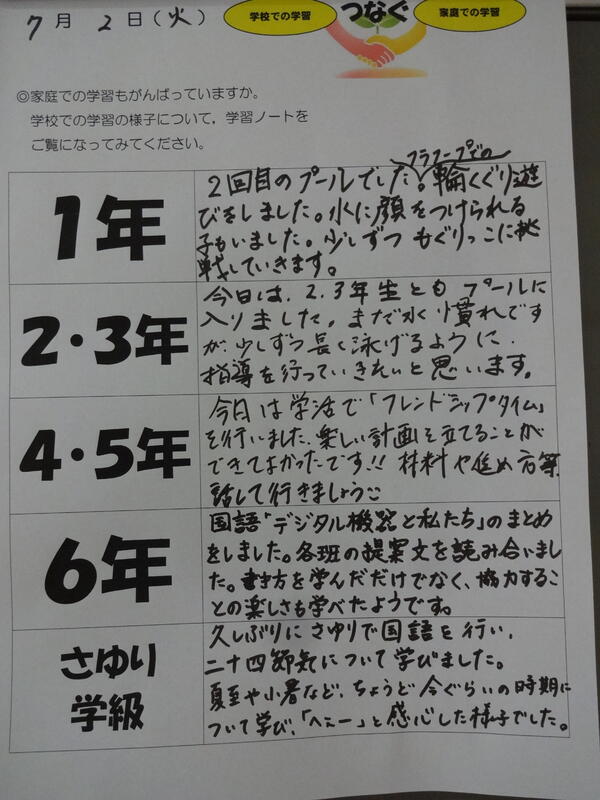 7月2日(火)
学校での学習
つなぐ
家庭での学習
◎家庭での学習もがんばっていますか。
学校での学習の様子について，学習ノートを
ご覧になってみてください。
1年
フラフープでの
2回目のプールでした。輪くぐり遊
びをしました。水に顔をつけられる
子もいました。少しずつもぐりっこに挑
戦していきます。
2・3年
今日は、2.3年生ともプールに
入りました。まだ水慣れです
が、少しずつ長く泳げるように、
指導を行っていきたいと思います。
4・5年
今日は学活で「フレンドシップタイム」
を行いました。楽しい計画を立てることが
できてよかったです!! 材料や進め方等
話して行きましょう
6年
国語「デジタル機器と私たち」のまとめ
をしました。各班の提案文を読み合いまし
た。書き方を学んだだけでなく、協力するこ
との楽しさも学べたようです。
さゆり
学級
久しぶりにさゆりで国語を行い、
二十四節気について学びました。
夏至や小暑など、ちょうど今ぐらいの時期に
ついて学び、「へぇー」と感心した様子でした。